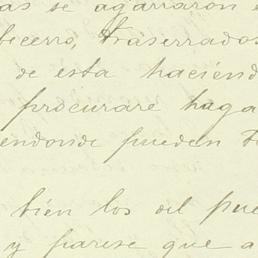 as se agarraron e
becerro, traserrados
de esta haciend
procurare haga
endonde pueden
bien los del pue
y parese que a